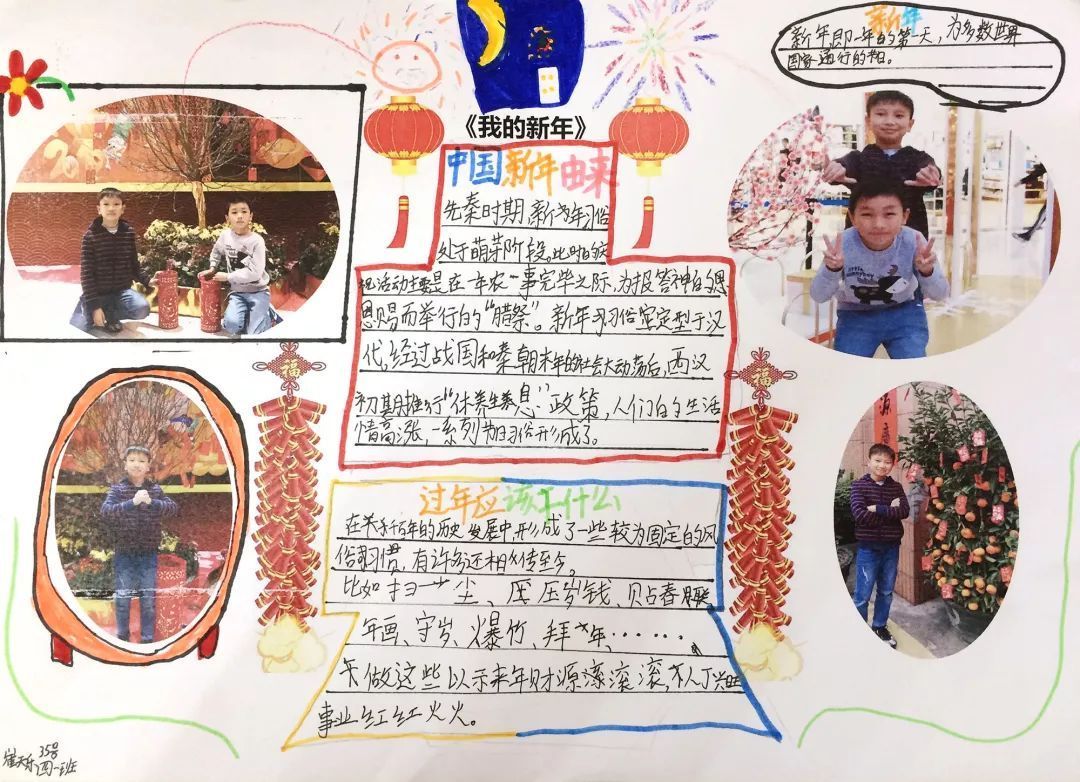 新年
新年即一年的第一天，为多数世界
国家通行的节日。
《我的新年》
中国新年由来
先秦时期，新年习俗
处于萌芽阶段。此时的庆
祝活动主要是在一年农事完毕之际，为报答神的恩
恩赐而举行的“腊祭”。新年习俗定型于汉
代，经过战国和秦朝末年的社会大动荡后，西汉
初期推行“休养生息”政策，人们的生活
情高涨，一系列节日习俗形成了。
过年应该干什么
在关千百年的历史发展中，形成了一些较为固定的风
俗习惯，有许多还相传至今。
比如扫尘、压岁钱、贴春联
年画、守岁、爆竹、拜年、……
做这些以示来年财源滚滚，人丁兴旺
事业红红火火。
福
福
源
35号
崔天乐 四一班